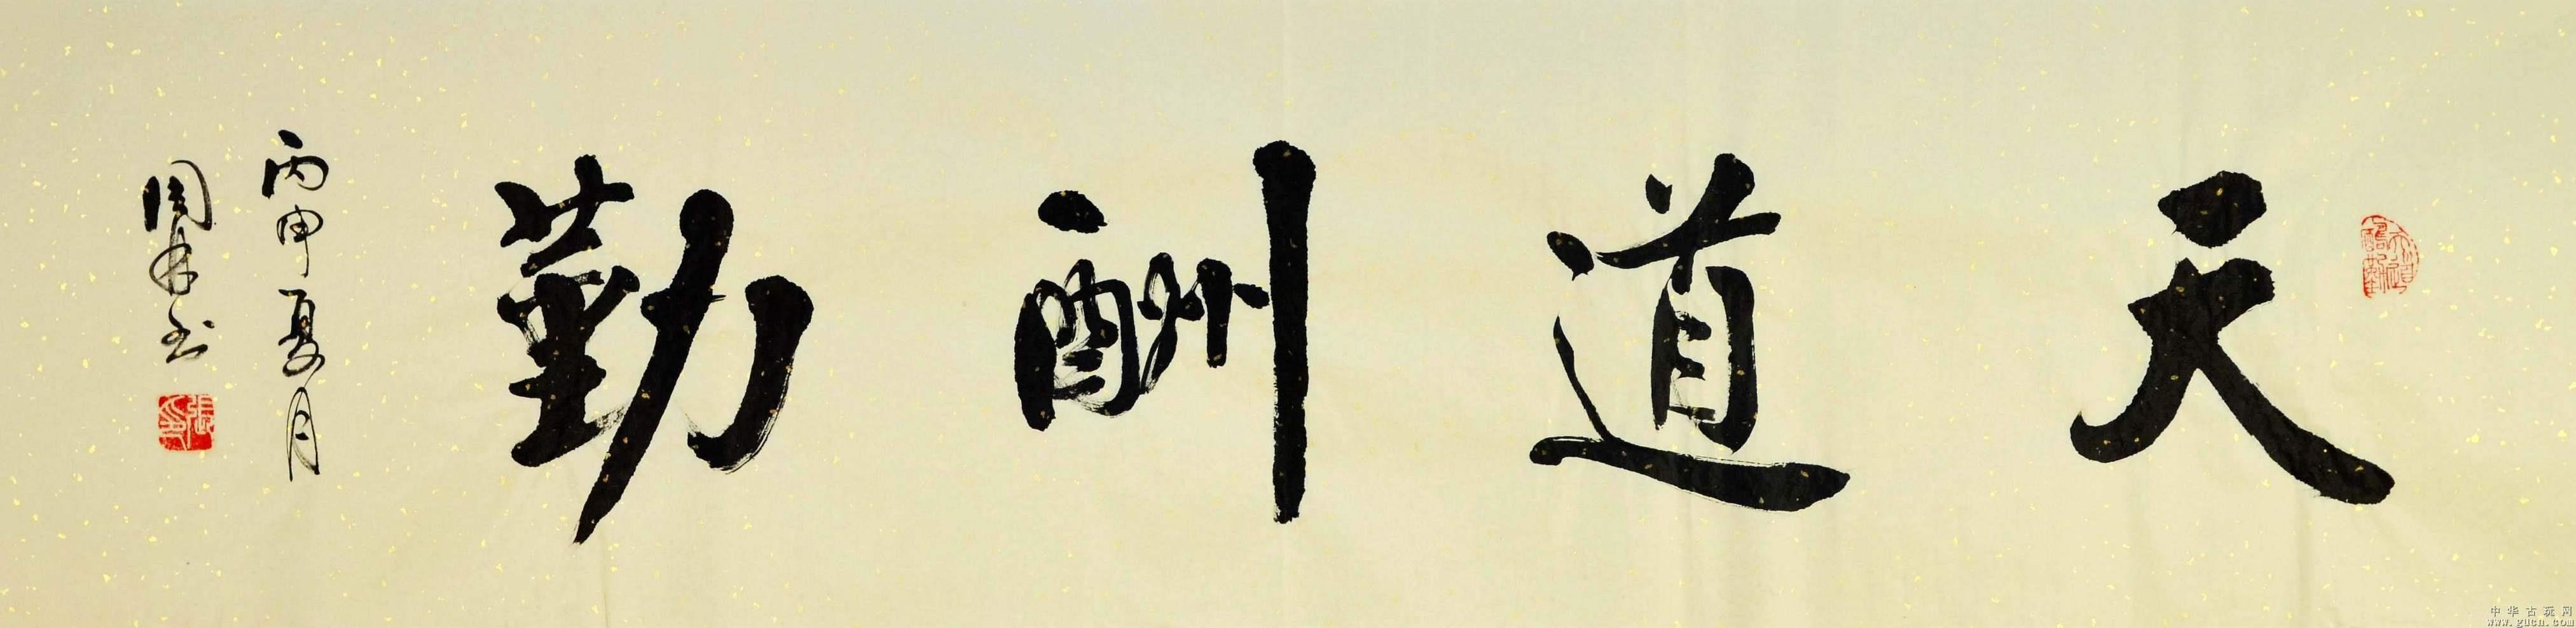 天道酬勤
丙申夏月
中华古玩网
www.gucn.com